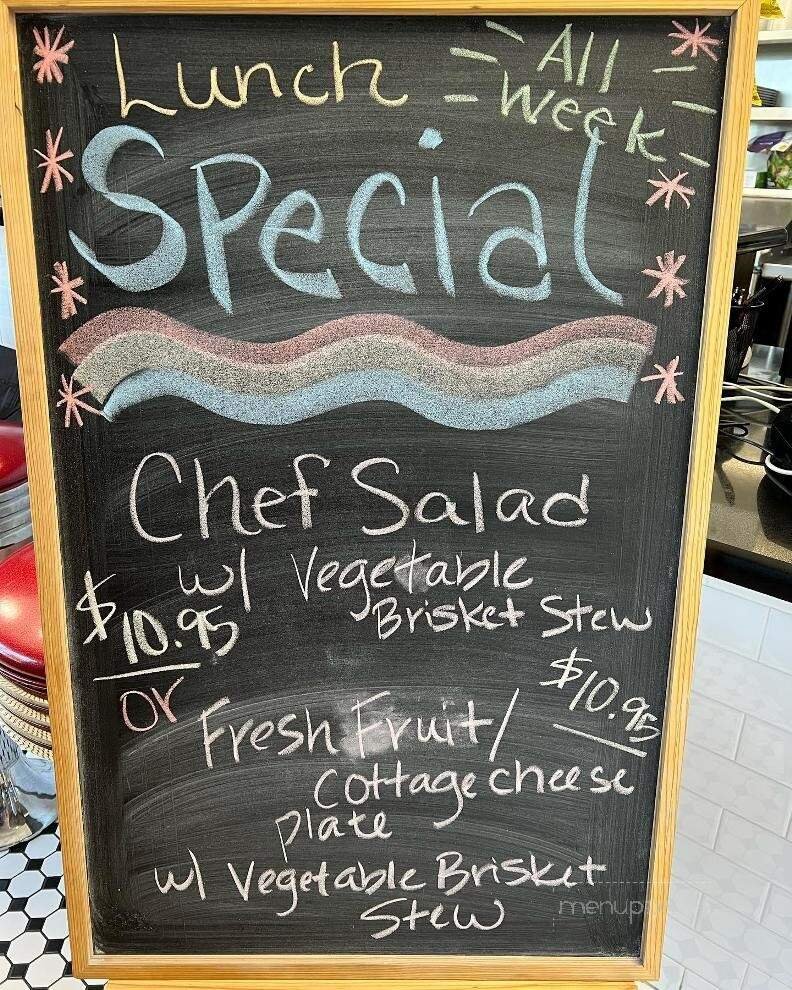 Lunch
All
Week
Special
Chef Salad
w/ Vegetable
Brisket Stew
$10.95
or
$10.95
Fresh Fruit/
Cottage cheese
plate
w/ Vegetable Brisket
Stew